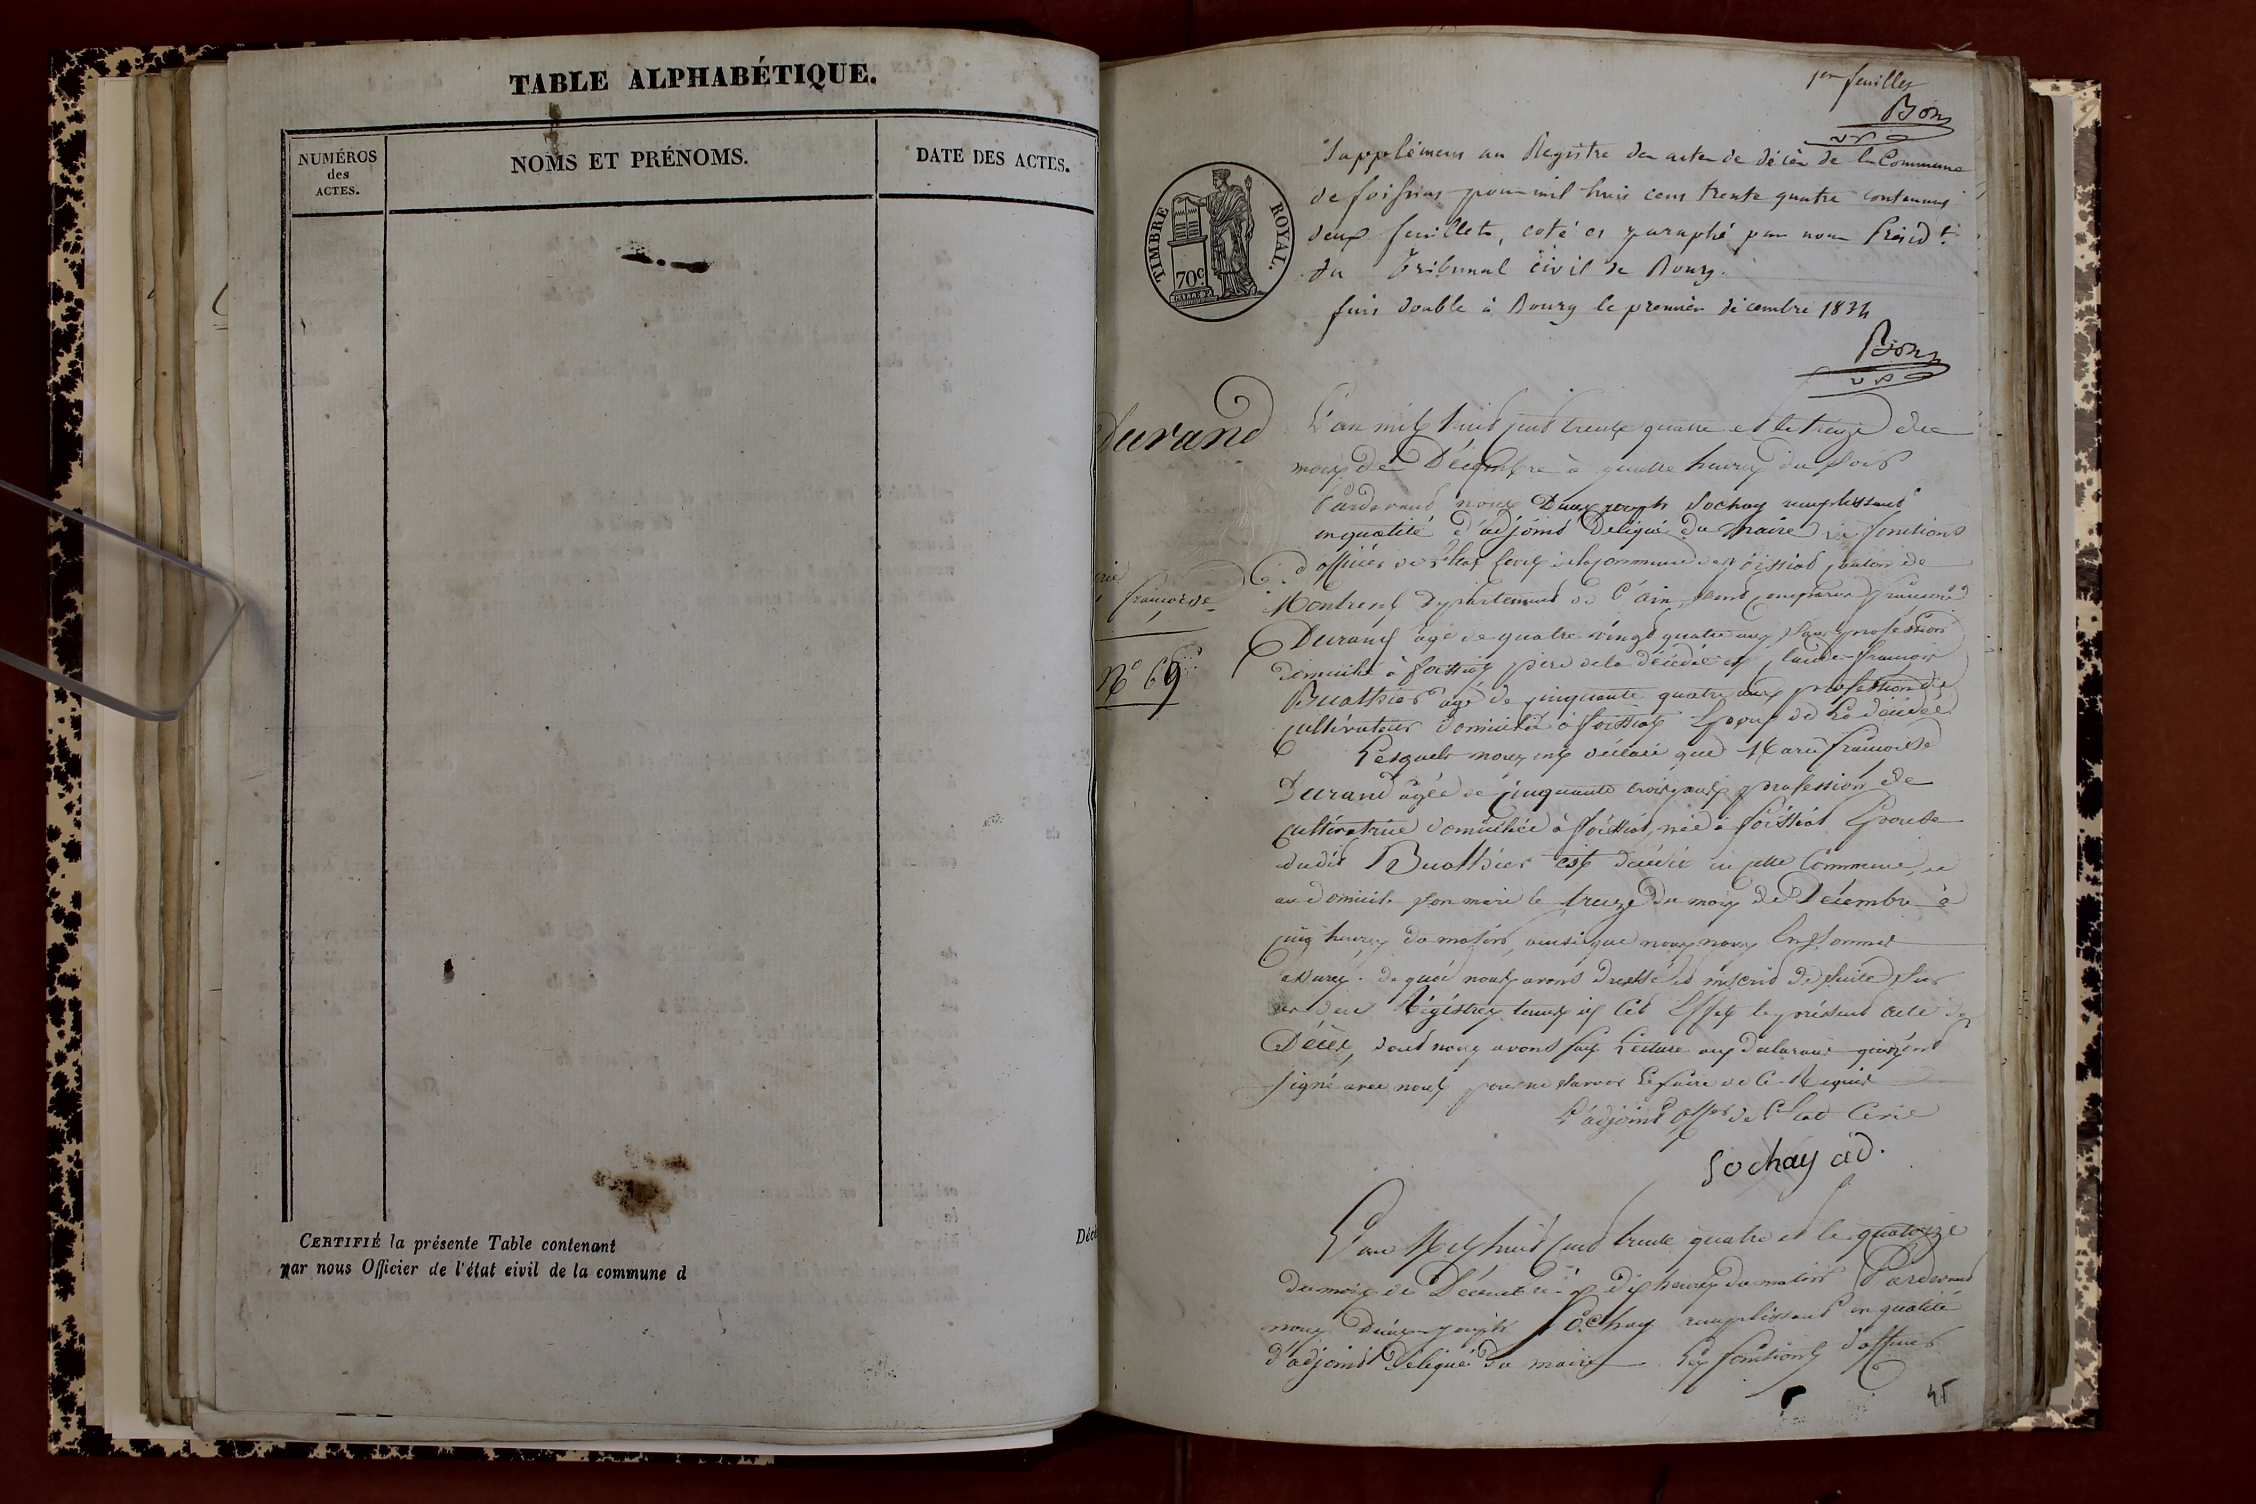 TABLE ALPHABÉTIQUE.
NUMÉROS
des
ACTES.
NOMS ET PRÉNOMS.
DATE DES ACTES.
CERTIFIÉ la présente Table contenant
Déc
par nous Officier de l'état civil de la commune d
1er feuillet
Bon
TIMBRE ROYAL.
70c
Supplément au Registre des actes de décès de la Commune
de foissiat pour mil huit cent trente quatre contenant
deux feuillets, coté et paraphé par nous Présid.t
du Tribunal civil de Bourg.
fait double à Bourg le premier décembre 1834
Bon
durand
françoise
N° 69
L'an mil huit cent trente quatre et le treize du
mois de Décembre à quatre heures du soir
Pardevant nous Joseph Sochay remplissant
en qualité d'adjoint Délégué du maire les fonctions
d'officier de l'état civil de la commune de foissiat canton de
Montrevel département de l'ain, sont comparus françois
Durand agé de quatre vingt quatre ans sans profession
domicilié à foissiat père de la décédée et claude françois
Buathier agé de cinquante quatre ans profession de
cultivateur domicilié à foissiat Epoux de la décédée
Lesquels nous ont déclaré que Marie françoise
Durand agée de cinquante trois ans profession de
cultivatrice domiciliée à foissiat, née à foissiat Epouse
dudit Buathier est décédée en cette Commune,
au domicile son mari le treize du mois de Décembre à
cinq heures du matin, ainsi que nous nous en sommes
assurés. de quoi nous avons dressé et inscrit de suite sur
les deux Régistres tenus à cet Effet le présent acte de
Décès, dont nous avons fait Lecture aux déclarants qui n'ont
signé avec nous pour ne savoir le faire de ce Requis
L'adjoint offer de l'Etat Civil
Sochay ad.
L'an Mil huit cent trente quatre et le quatorze
du mois de Décembre à dix heures du matin Pardevant
nous Joseph Sochay remplissant en qualité
d'adjoint Délégué du maire les fonctions d'officier
45